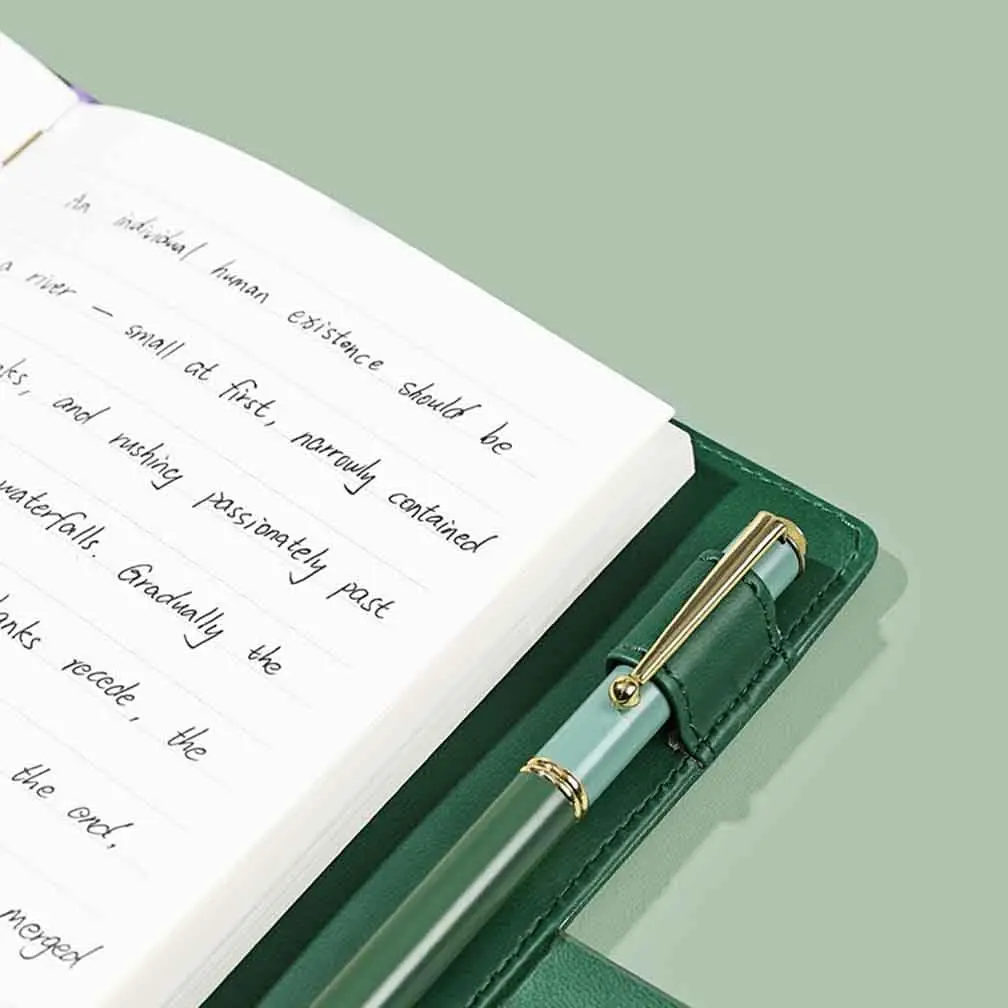 An individual human existence should be
a river — small at first, narrowly contained
ks, and rushing passionately past
waterfalls. Gradually the
anks recede, the
the end,
merged